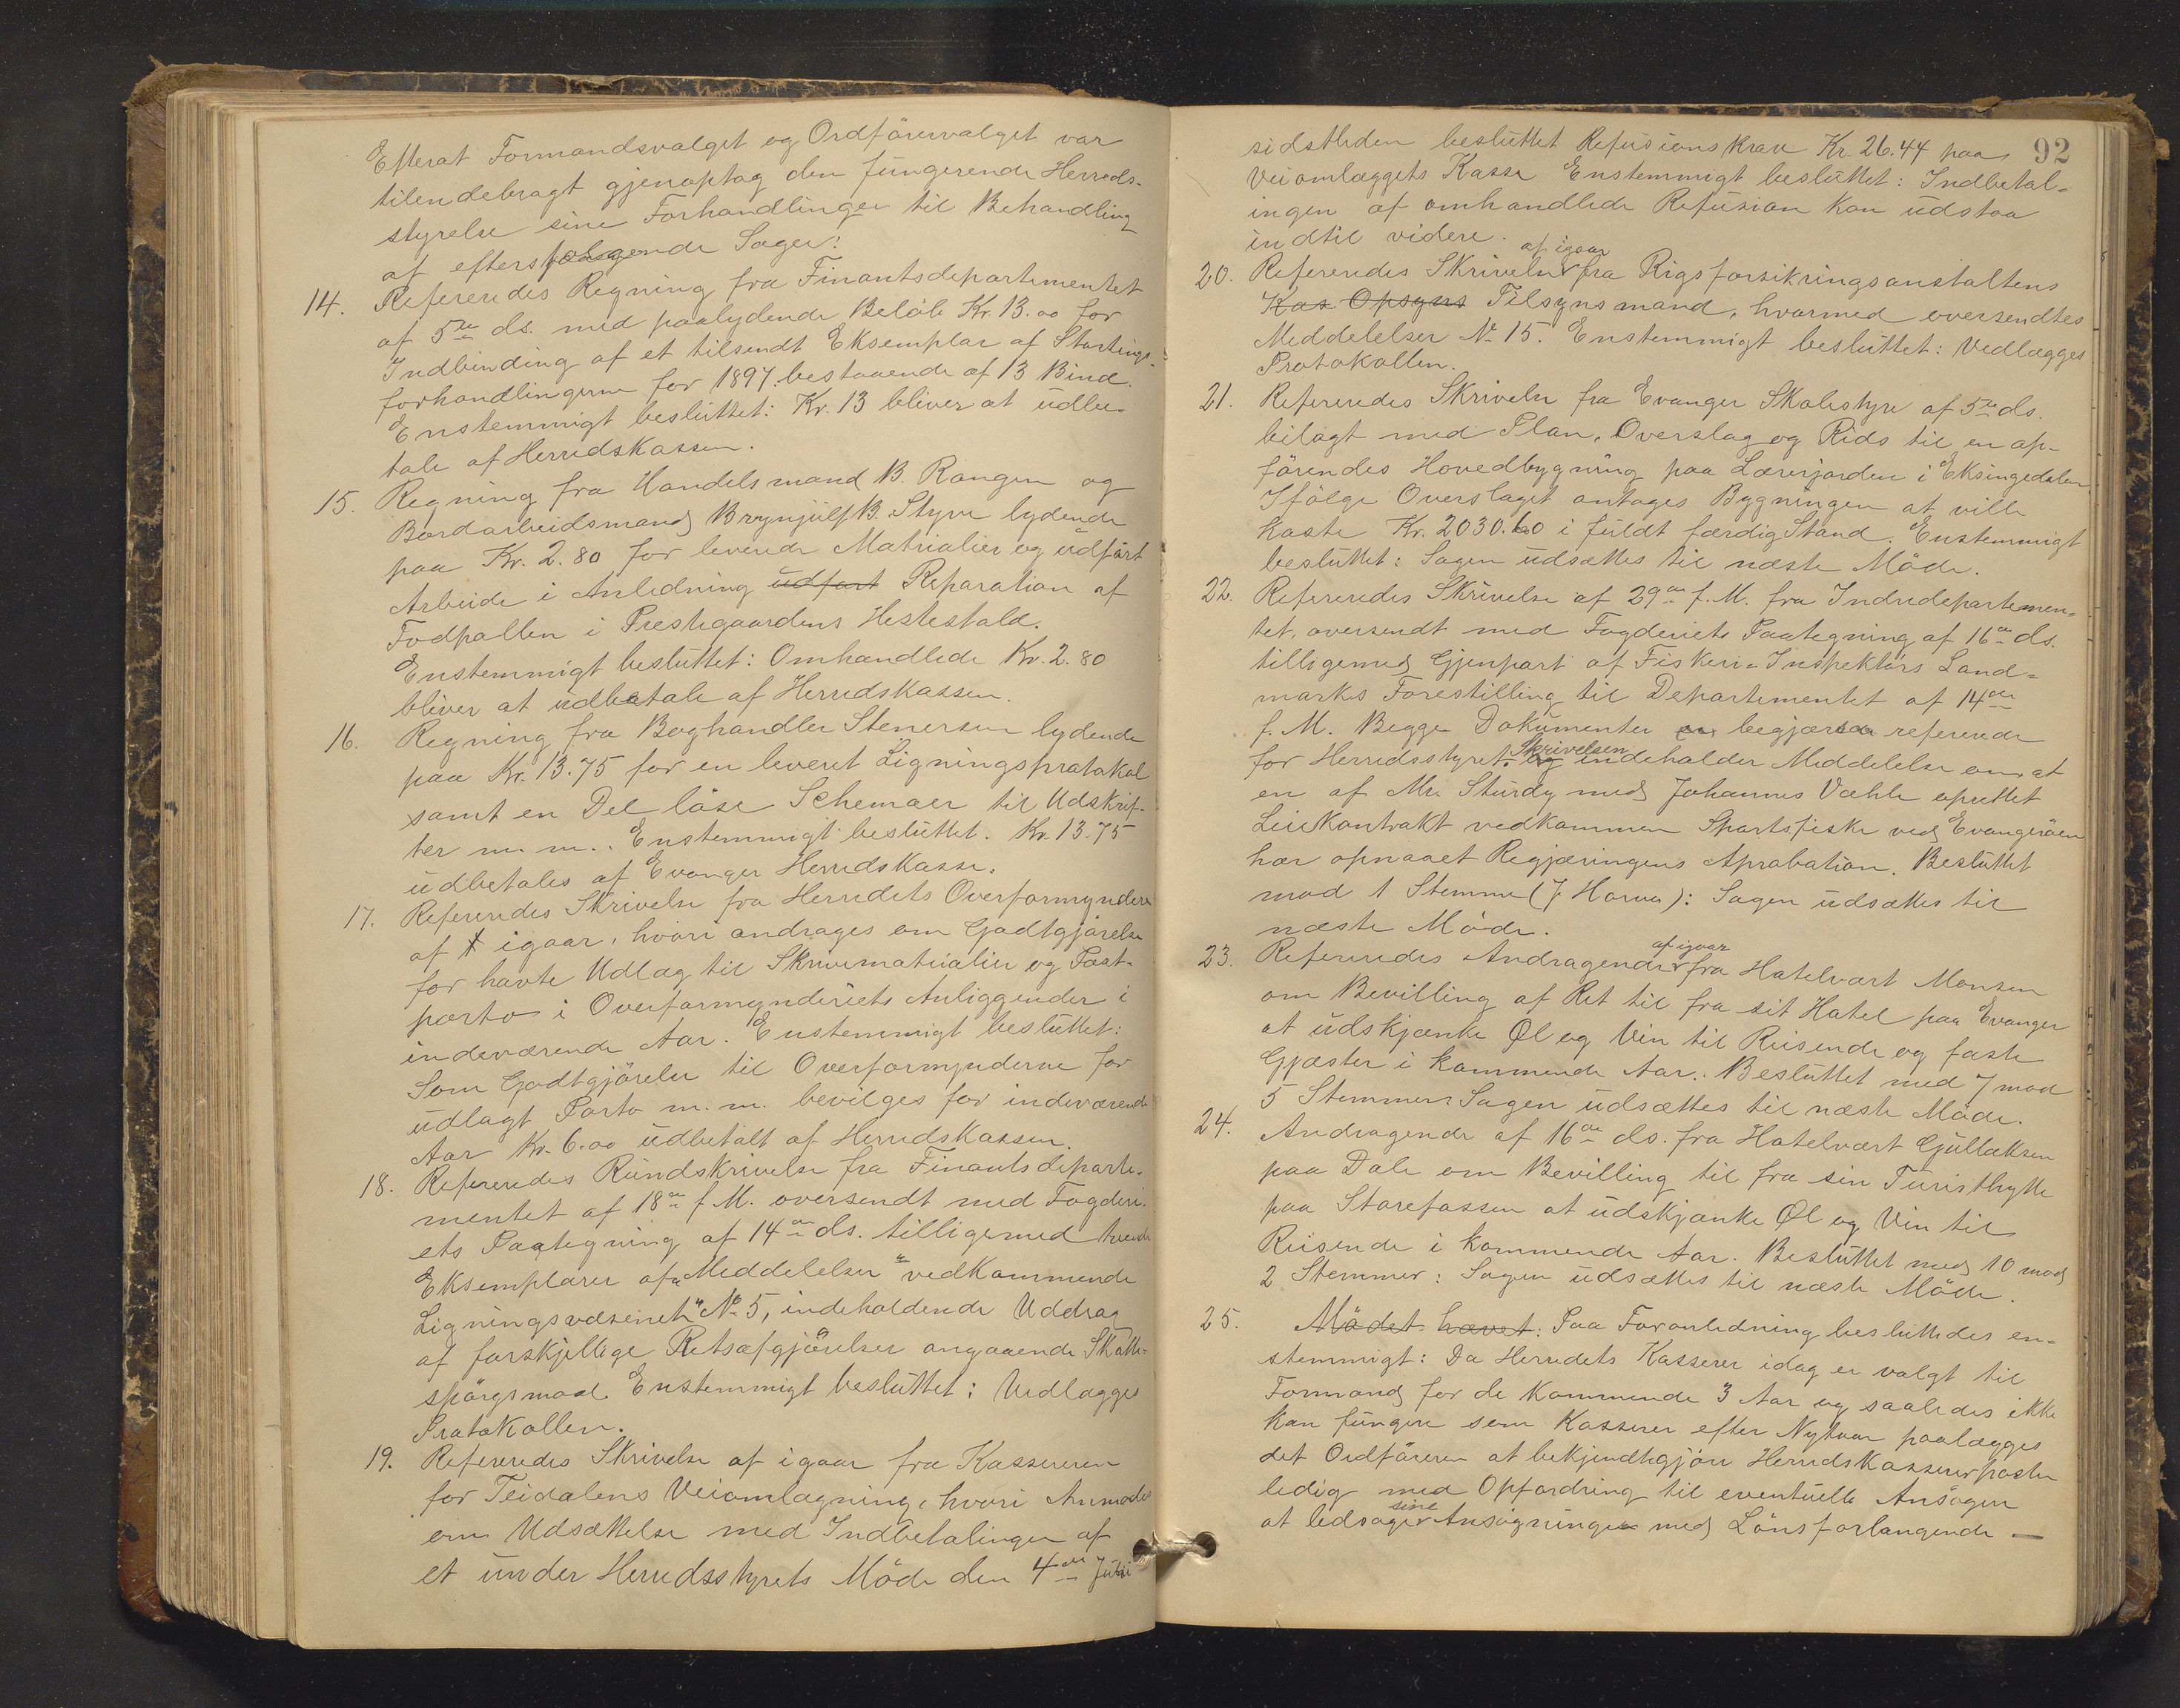 Efterat Formandsvalget og Ordförervalget var
tilendebragt gjenoptog den fungerende Herreds-
styrelse sine Forhandlinger til Behandling
af efterfølgende Sager:
14. Refereredes Regning fra Finantsdepartementet
af 5te ds. med paalydende Beløb Kr. 13.00 for
Indbinding af et tilsendt Eksemplar af Stortings-
forhandlingerne for 1897. bestaaende af 13 Bind.
Enstemmigt besluttet: Kr. 13 bliver at udbe-
tale af Herredskassen.
15. Regning fra Handelsmand B. Rangen og
Bordarbeidsmand Brynjulf B. Styve lydende
paa Kr. 2.80 for leverede Matrialier og udfört
Arbeide i Anledning udfört Reparation af
Fodpallen i Prestegaardens Hestestald.
Enstemmigt besluttet: Omhandlede Kr. 2.80
bliver at udbetale af Herredskassen.
16. Regning fra Boghandler Stenersen lydende
paa Kr. 13.75 for en leveret Ligningsprotokol
samt en Del löse Schemaer til Udskrif-
ter m. m.. Enstemmigt besluttet. Kr. 13.75
udbetales af Evanger Herredskasse.
17. Refereredes Skrivelse fra Herredets Overformyndere
af igaar, hvori andrages om Godtgjörelse
for havte Udlæg til Skrivematrialier og Post-
porto i Overformynderiets Anliggender i
indeværende Aar. Enstemmigt besluttet:
Som Godtgjörelse til Overformynderne for
udlagt Porto m. m. bevilges for indeværende
Aar Kr. 6.00 udbetalt af Herredskassen.
18. Refereredes Rundskrivelse fra Finantsdeparte-
mentet af 18de f. M. oversendt med Fogderi-
ets Paategning af 14de ds. tilligemed tvende
Eksemplarer af "Meddelelser" vedkommende
Ligningsvæsenet" No 5, indeholdende Uddrag
af forskjellige Retsafgjörelser angaaende Skatte-
spörgsmaal. Enstemmigt besluttet: Vedlægges
Protokollen.
19. Refereredes Skrivelse af igaar fra Kassereren
for Teidalens Veiomlægning, hvori Anmodes
om Udsættelse med Indbetalingen af
et under Herredsstyrets Möde den 4de Juli
92
sidstleden besluttet Refusionskrav Kr. 26.44 paa
Veiomlæggets Kasse Enstemmigt besluttet: Indbetal-
ingen af omhandlede Refusion kan udstaa
indtil videre.
20. Refereredes Skrivelse af igaar fra Rigsforsikringsanstaltens
Kas Opsyns Tilsynsmand, hvormed oversendtes
Meddelelser No 15. Enstemmigt besluttet: Vedlægges
Protokollen.
21. Refereredes Skrivelse fra Evanger Skolestyre af 5te ds.
bilagt med Plan, Overslag og Rids til en op-
förendes Hovedbygning paa Lærerjorden i Eksingedalen
Ifölge Overslaget antages Bygningen at ville
koste Kr. 2030.60 i fuldt færdig Stand. Enstemmigt
besluttet: Sagen udsættes til næste Möde.
22. Refereredes Skrivelse af 29de f. M. fra Indredepartemen-
tet, oversendt med Fogderiets Paategning af 16de ds.
tilligemed Gjenpart af Fiskeri-Inspektörs Land-
marks Forestilling til Departementet af 14de
f. M. Begge Dokumenter begjæres refererede
for Herredsstyret. og Skrivelsen indeholder Meddelelse om at
en af Mr. Sturdy med Johannes Væhle oprettet
Leiekontrakt vedkommen Sportsfiske ved Evangeröen
har opnaaet Regjæringens Aprobation. Besluttet
mod 1 Stemme (J. Horve): Sagen udsættes til
næste Möde.
23. Refereredes Andragende af igaar fra Hotelvært Monsen
om Bevilling af Ret til fra sit Hotel paa Evanger
at udskjænke Øl og Vin til Reisende og faste
Gjæster i kommende Aar. Besluttet med 7 mod
5 Stemmer: Sagen udsættes til næste Möde.
24. Andragende af 16de ds. fra Hotelvært Gullaksen
paa Dale om Bevilling til fra sin Turisthytte
paa Storefossen at udskjænke Øl og Vin til
Reisende i kommende Aar. Besluttet med 10 mod
2 Stemmer: Sagen udsættes til næste Möde.
25. Mödet hævet: Paa Foranledning besluttedes en-
stemmigt: Da Herredets Kasserer idag er valgt til
Formand for de kommende 3 Aar og saaledes ikke
kan fungere som Kasserer efter Nytaar paalægges
det Ordföreren at bekjendtgjöre Herredskassererposten
ledig med Opfordring til eventuelle Ansögere
at ledsage sine Ansögninger med Lönsforlangende —